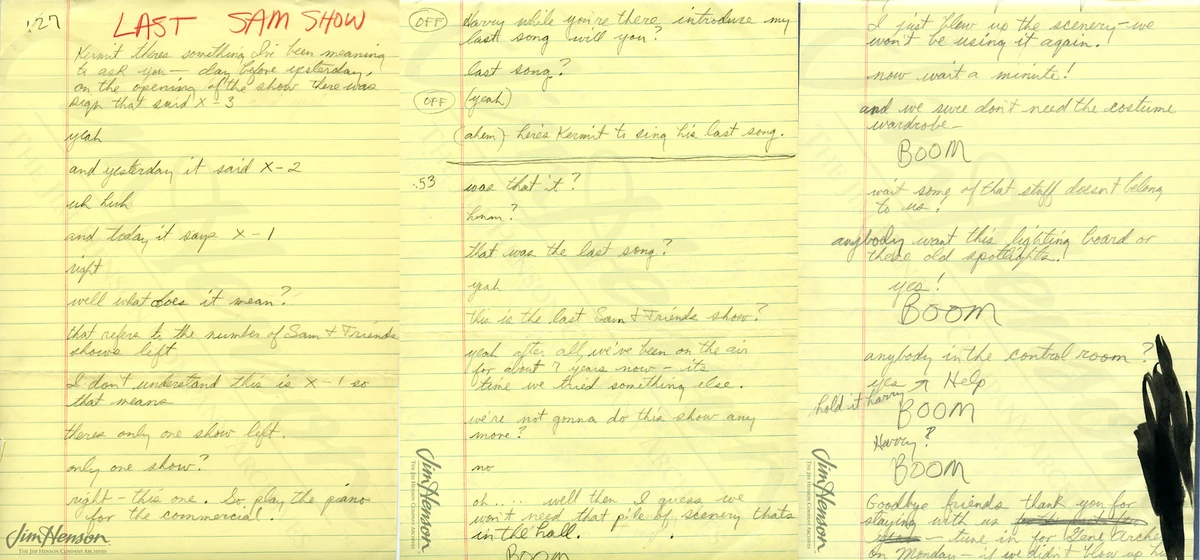 :27
LAST SAM SHOW
Kermit theres something I've been meaning
to ask you — day before yesterday,
on the opening of the show there was
sign that said X-3
yeah
and yesterday it said X-2
uh huh
and today it says X-1
right
well what does it mean?
that refers to the number of Sam & Friends
shows left
I don't understand this is X-1 so
that means
theres only one show left.
only one show?
right — this one. So play the piano
for the commercial.
Jim Henson
THE JIM HENSON COMPANY ARCHIVES
OFF Harry while you're there, introduce my
last song will you?
last song?
OFF (yeah)
(ahem) heres Kermit to sing his last song.
:53 was that it?
hmm?
that was the last song?
yeah
this is the last Sam & Friends show?
yeah after all, we've been on the air
for about 7 years now — its
time we tried something else.
we're not gonna do this show any
more?
no
oh.... well then I guess we
won't need that pile of scenery thats
in the hall.
BOOM
Jim Henson
THE JIM HENSON COMPANY ARCHIVES
I just blew up the scenery — we
won't be using it again.
now wait a minute!
and we sure don't need the costume
wardrobe —
BOOM
wait some of that stuff doesn't belong
to us.
anybody want this lighting board or
these old spotlights.
yes!
BOOM
anybody in the control room?
yes Help
hold it harry
BOOM
Harry?
BOOM
Goodbye friends thank you for
staying with us
— tune in for Gene Archer
on Monday — if we didn't blow up
Jim Henson
THE JIM HENSON COMPANY ARCHIVES